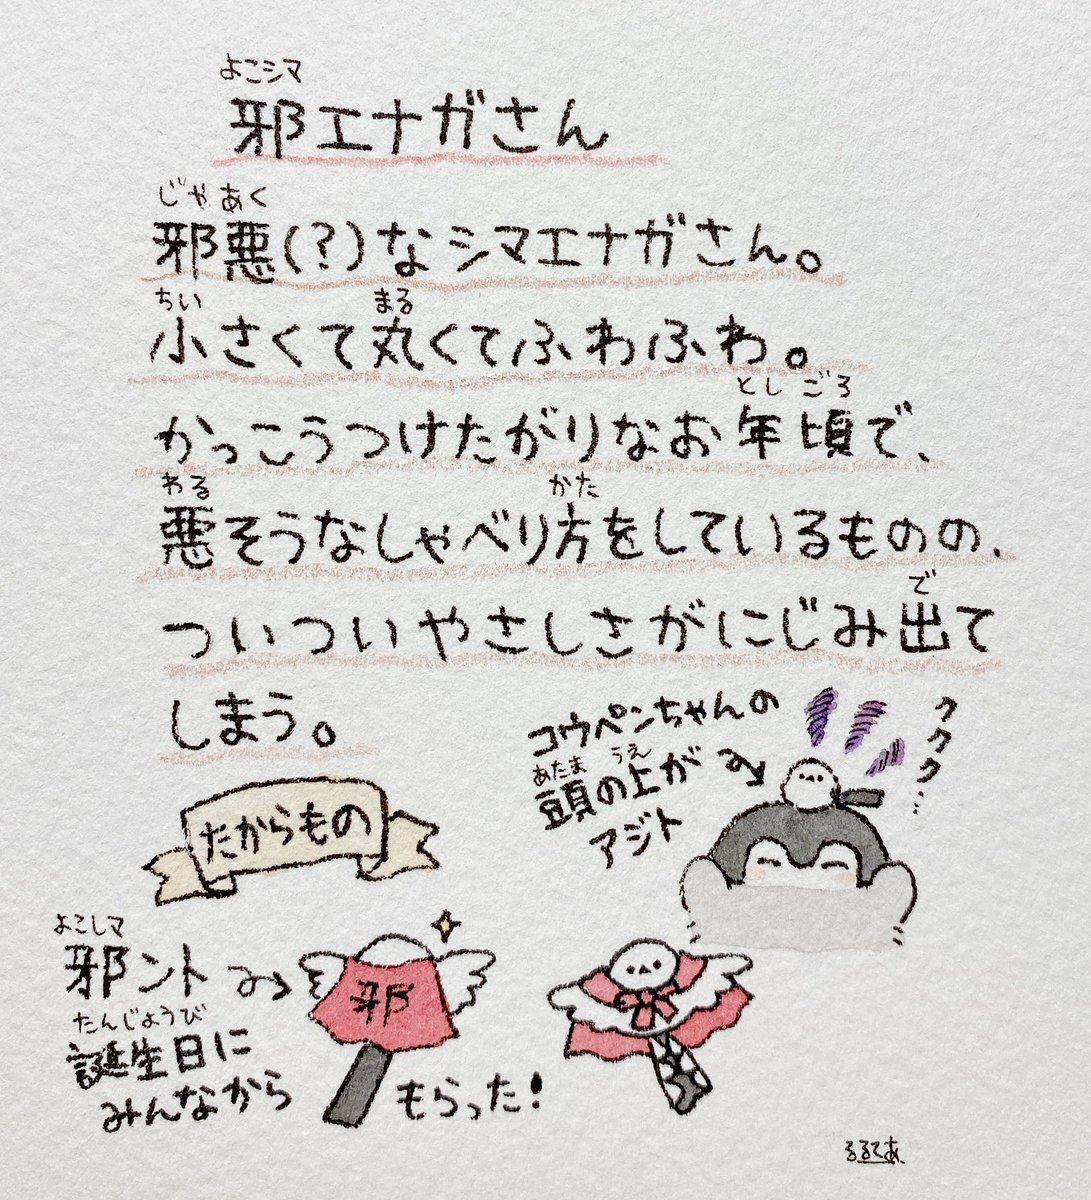 よこシマ
邪エナガさん
じゃあく
邪悪(?)なシマエナガさん。
ちい まる
小さくて丸くてふわふわ。
としごろ
かっこうつけたがりなお年頃で、
わる かた
悪そうなしゃべり方をしているものの、
で
ついついやさしさがにじみ出て
しまう。
コウペンちゃんの
あたま うえ
頭の上が
アジト
ククク…
たからもの
よこしマ
邪ント
邪
たんじょうび
誕生日に
みんなから
もらった!
るるてあ